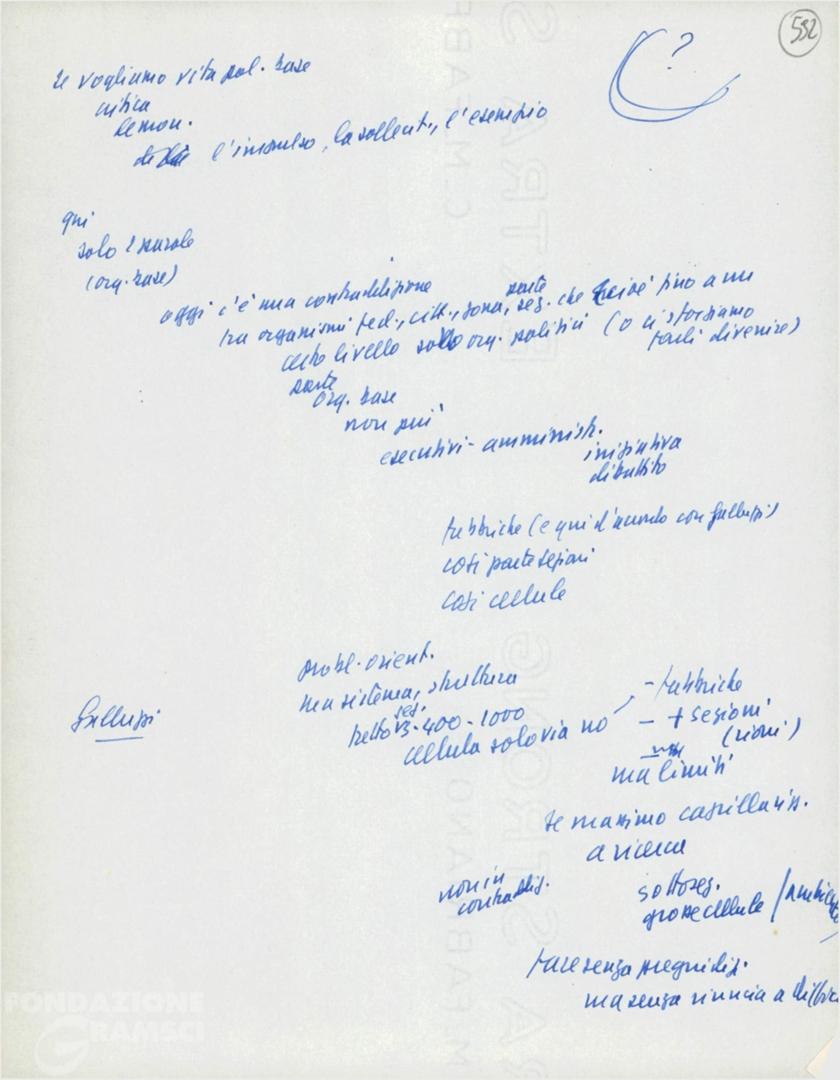 592
?
se vogliamo vita pol. base
critica
demon.
l'impulso, la sollecit., l'esempio
qui
solo 2 parole
(org. base)
oggi c'è una contraddizione
tra organismi fed., citt., zona, parte seg. che cioè fino a un
certo livello sono org. politici (o ci sforziamo
parte farli divenire)
org. base
non più
esecutivi - amministr.
iniziativa
dibattito
fabbriche (e qui d'accordo con Galluzzi)
così parte sezioni
così cellule
probl. orient.
ma sistema, struttura
Galluzzi
detto seg. 400 - 1000
cellula solo via no
- fabbriche
- + sezioni
(rioni)
ma limiti
se massimo capillarizz.
a ricerca
non in
contraddiz.
sottosez.
grosse cellule
fare senza pregiudiz.
ma senza rinuncia a
FONDAZIONE
GRAMSCI